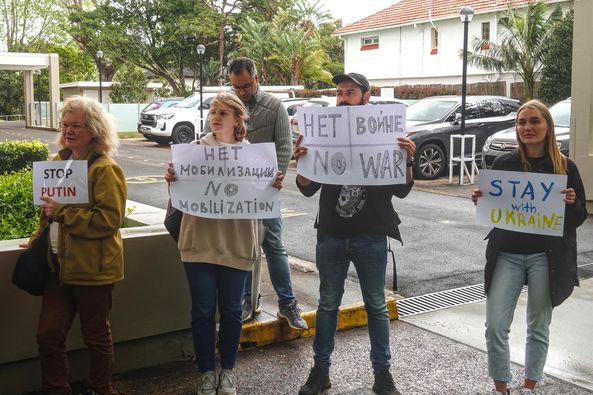 STOP
PUTIN
НЕТ
МОБИЛИЗАЦИИ
NO
MOBILIZATION
НЕТ ВОЙНЕ
NO WAR
STAY
with
UKRAINE